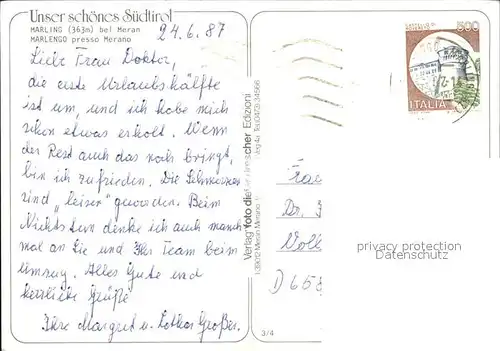 Unser schönes Südtirol
MARLING (363m) bei Meran
MARLENGO presso Merano
24.6.87
Liebe Frau Doktor,
die erste Urlaubshälfte
ist um, und ich habe mich
schon etwas erholt. Wenn
der Rest auch das noch bringt,
bin ich zufrieden. Die Schmerzen
sind „leiser" geworden. Beim
Nichtstun denke ich auch manch
mal an Sie und Ihr Team beim
Umzug. Alles Gute und
herzliche Grüße
Ihre Margret u. Lothar Großer.
Verlag foto
Edizioni
I-39012 Meran Merano
3/4
500
ITALIA
Frau
Dr.
Volk
D 658
privacy protection
Datenschutz